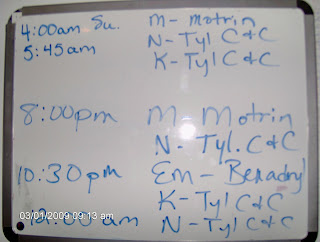 4:00am Su. M- motrin
5:45am N- Tyl C & C
K- Tyl C & C
8:00pm M- Motrin
N- Tyl. C & C
10:30pm Em - Benadryl
K- Tyl C & C
:00 am N- Tyl C & C
03/01/2009 09:13 am